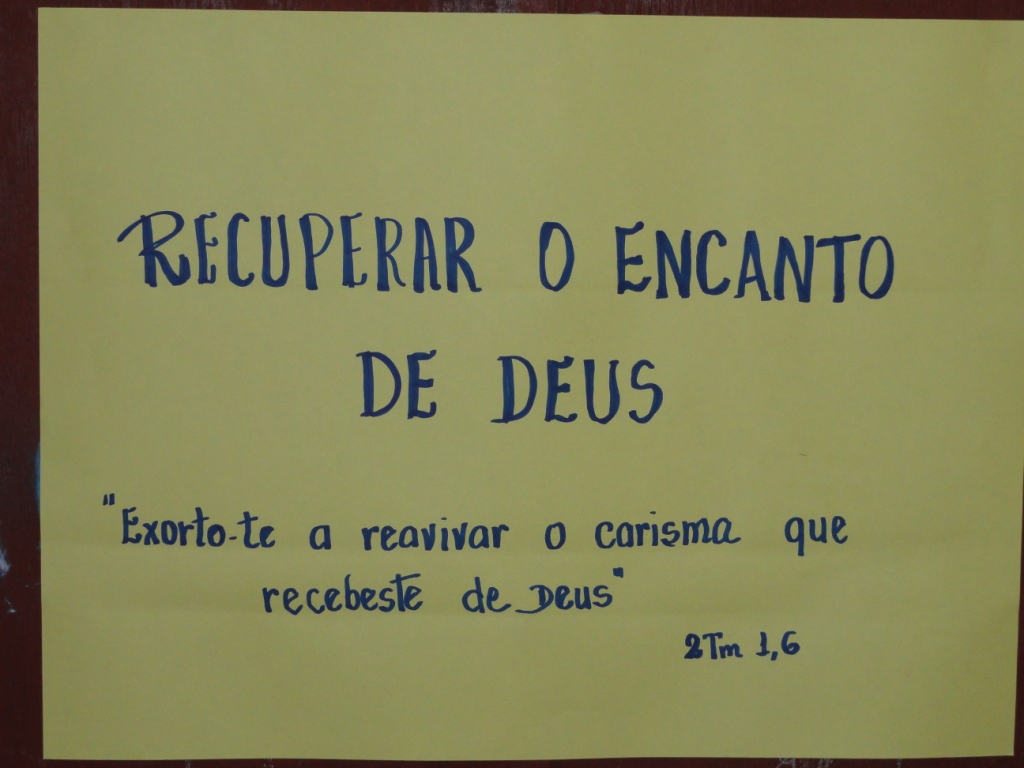 RECUPERAR O ENCANTO
DE DEUS
"Exorto-te a reavivar o carisma que
recebeste de Deus"
2Tm 1,6